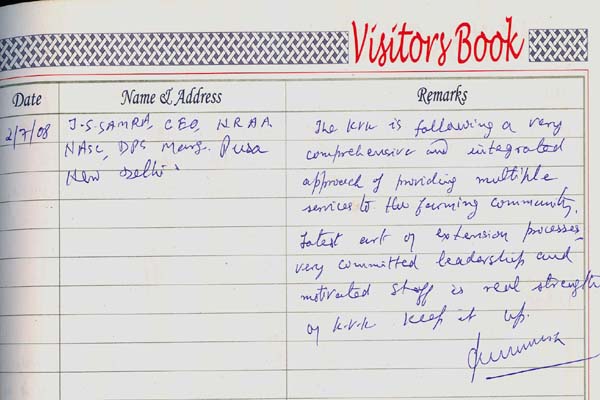 Visitors Book
Date Name & Address Remarks
2/7/08 J.S. SAMRA, CEO, NRAA
NASC, DPS Marg. Pusa
New Delhi
The KVK is following a very
comprehensive and integrated
approach of providing multiple
services to the farming community.
Latest art of extension processes,
very committed leadership and
motivated staff is real strength
of k.v.k keep it up.